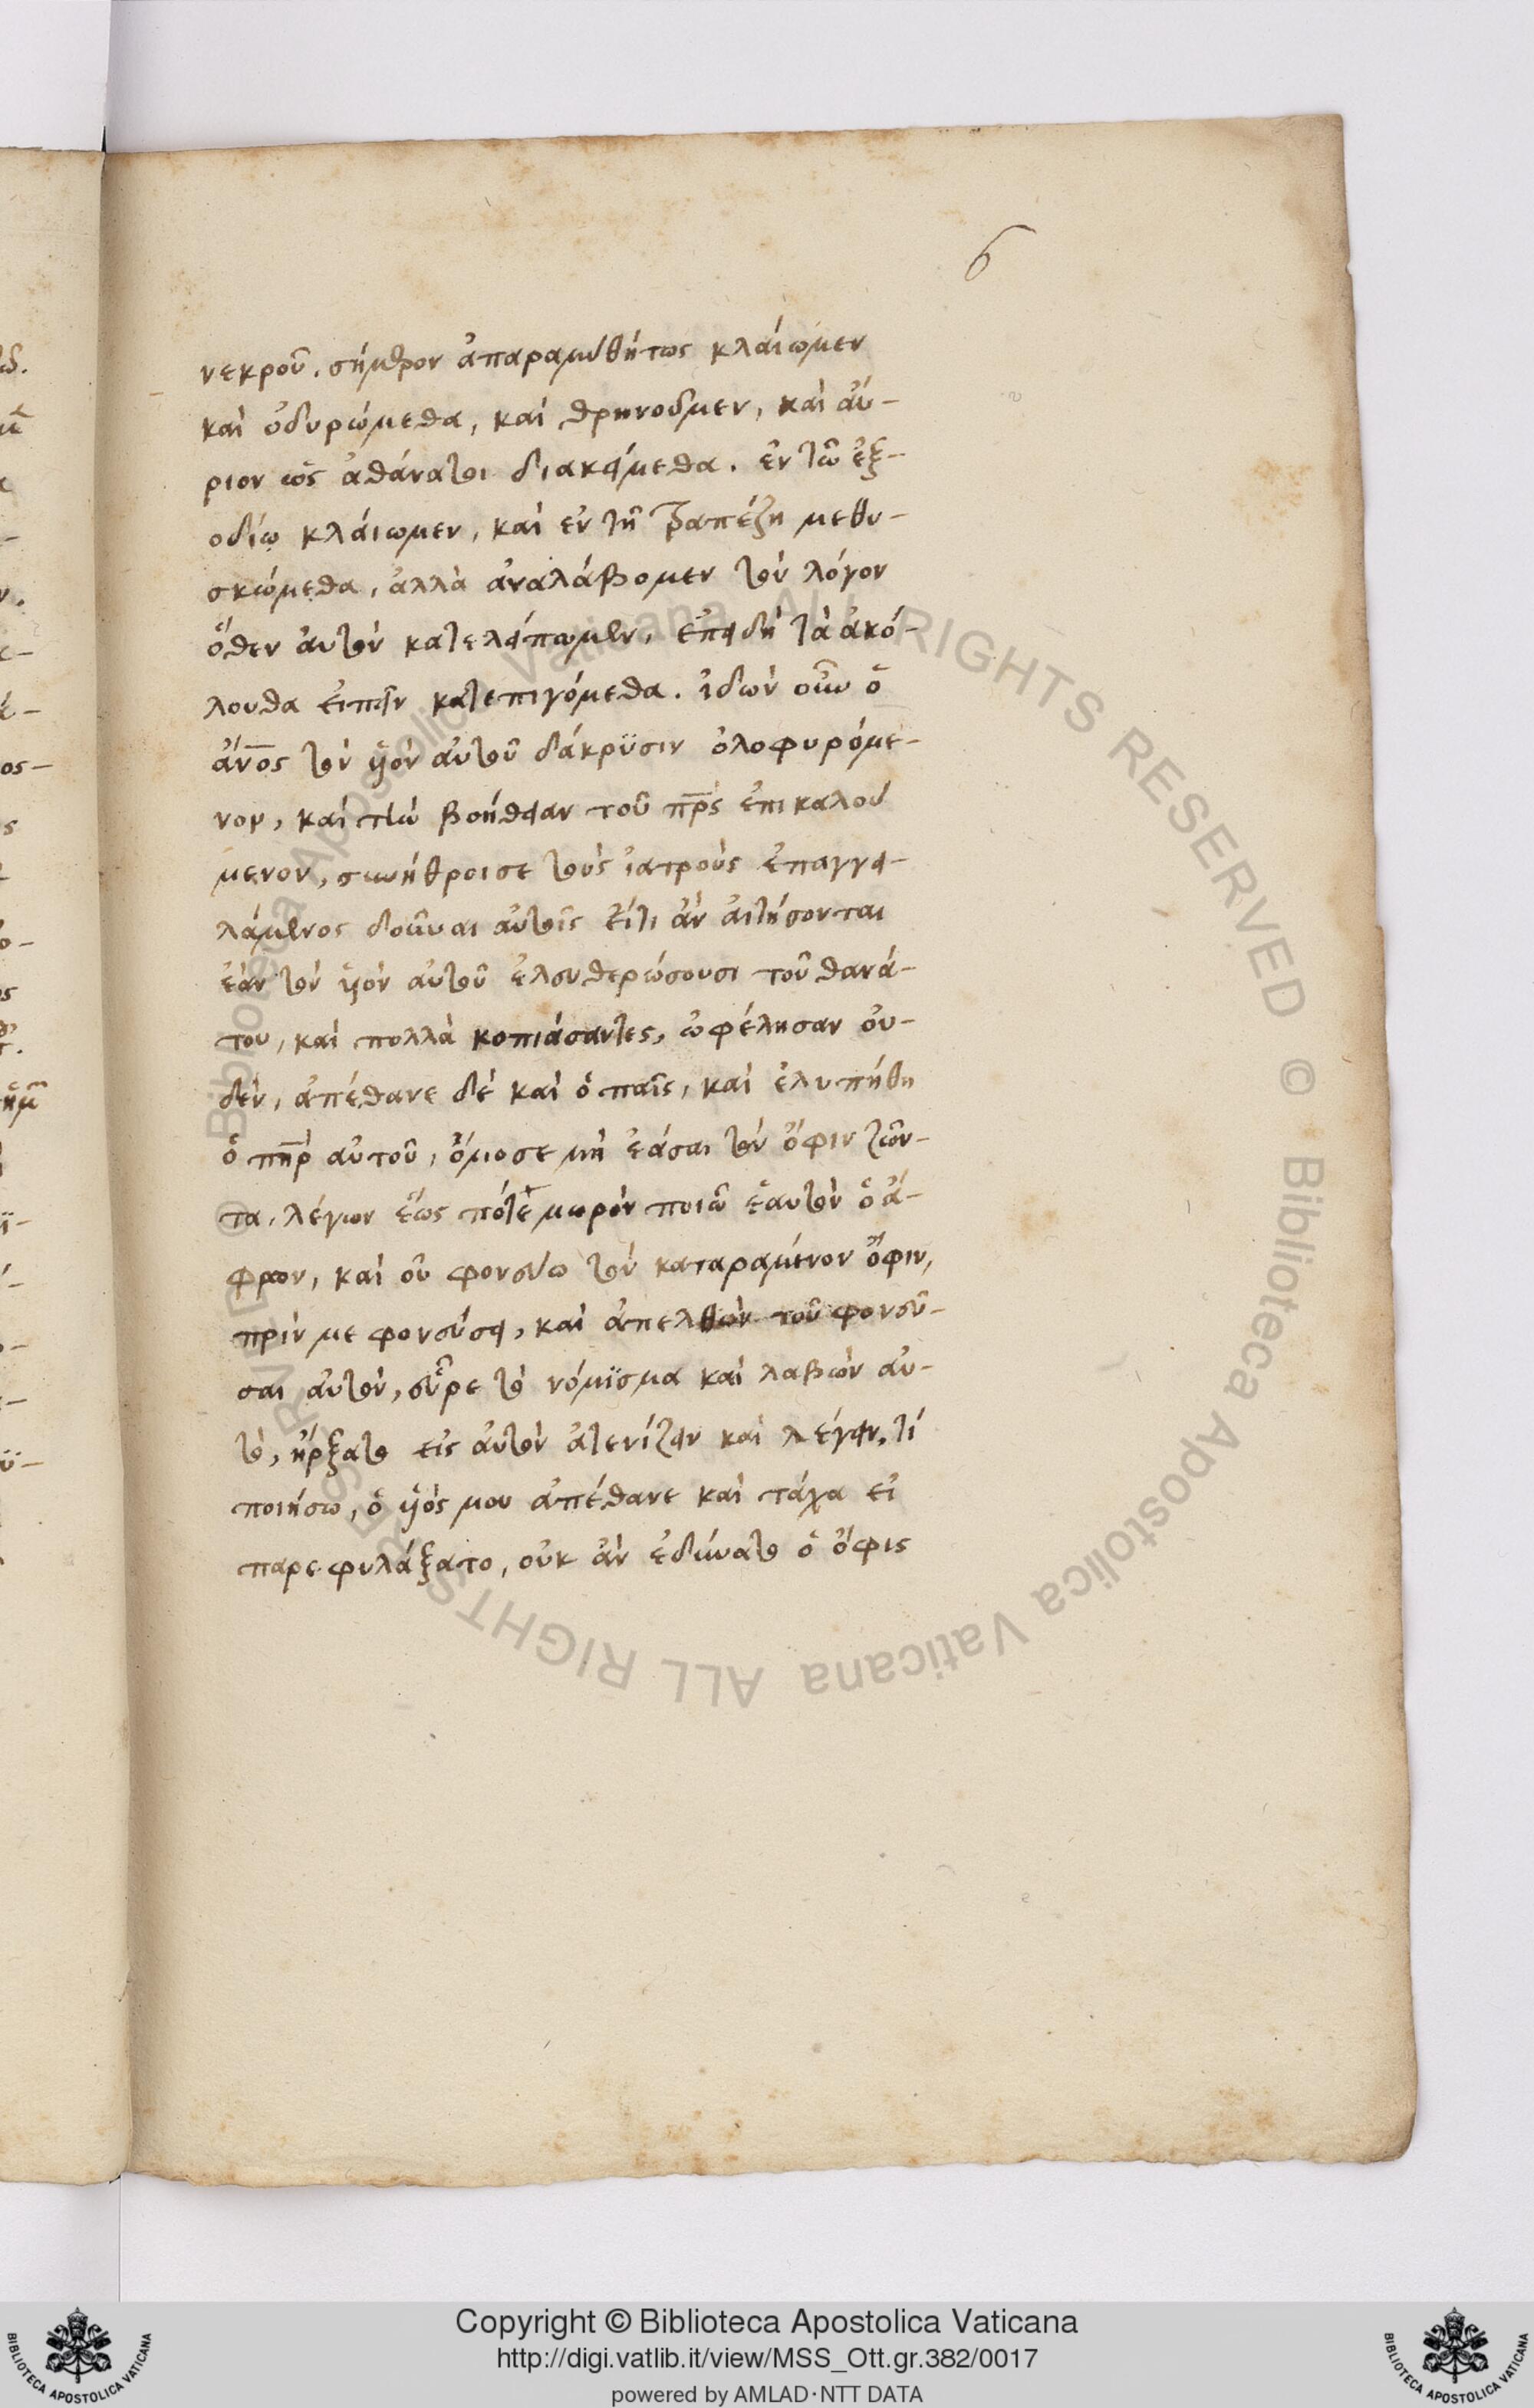 6
νεκροῦ. σήμερον ἀπαραμυθήτως κλάιωμεν
καὶ ὀδυρώμεθα, καὶ θρηνοῦμεν, καὶ ἀύ-
ριον ὡς ἀθάνατοι διακείμεθα. ἐν τῶ ἐξ-
οδίω κλάιωμεν, καὶ ἐν τῆ τραπέζη μεθυ-
σκώμεθα, ἀλλὰ ἀναλάβομεν τὸν λόγον
ὅθεν ἀυτὸν κατελείπωμεν, ἐπειδὴ τὰ ἀκό-
λουθα ἐιπεῖν κατεπιγόμεθα. ἰδὼν οὖν ὁ
ἄνος τὸν ὑὸν αὐτοῦ δάκρϋσιν ὀλοφυρόμε-
νον, καὶ τὴν βοήθειαν τοῦ πρς ἐπικαλού
μενον, συνήθροισε τοὺς ἰατροὺς ἐπαγγει-
λάμενος δοῦναι αὐτοῖς εἴτι ἂν ἀιτήσονται
ἐὰν τὸν ὑὸν αὐτοῦ ἐλευθερώσουσι τοῦ θανά-
του, καὶ πολλὰ κοπιάσαντες, ὠφέλησαν οὐ-
δέν, ἀπέθανε δὲ καὶ ὁ παῖς, καὶ ἐλυπήθη
ὁ πηρ αὐτοῦ, ὄμοσε μὴ ἐάσαι τὸν ὄφιν ζῶν-
τα, λέγων ἕως πότε μωρὸν ποιῶ ἑαυτὸν ὁ ἄ-
φρον, καὶ οὐ φονεύω τὸν καταραμένον ὄφιν,
πρίν με φονεύσει, καὶ ἀπελθὼν τοῦ φονεῦ-
σαι αὐτὸν, εὗρε τὸ νόμϊσμα καὶ λαβὼν αὐ-
τὸ, ἤρξατο εἰς αὐτὸν ἀτενίζειν καὶ λέγειν, τί
ποιήσω, ὁ ὑός μου ἀπέθανε καὶ τάχα εἰ
παρεφυλάξατο, οὐκ ἂν ἐδύνατο ὁ ὄφις
Copyright © Biblioteca Apostolica Vaticana
http://digi.vatlib.it/view/MSS_Ott.gr.382/0017
powered by AMLAD·NTT DATA